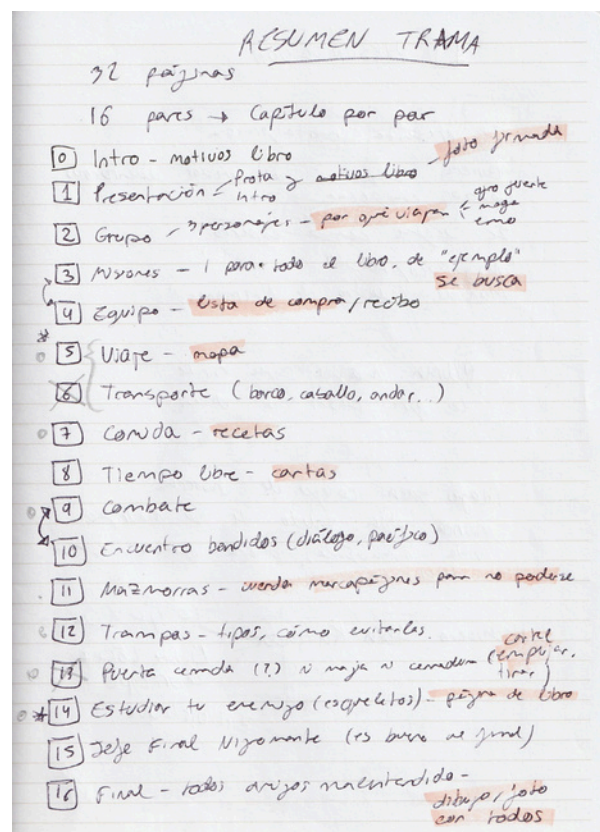 RESUMEN TRAMA
32 páginas
16 pares → Capítulo por par
0 Intro - motivos libro
foto firmada
1 Presentación - Prota y motivos libro
Intro
2 Grupo - 3 personajes - por qué viajan
otro fuerte
maga
3 Misiones - 1 para todo el libro, de "ejemplo"
se busca
4 Equipo - lista de compra / recibo
5 Viaje - mapa
6 Transporte (barco, caballo, andar...)
7 Comida - recetas
8 Tiempo libre - cartas
9 Combate
10 Encuentro bandidos (diálogo, pacífico)
11 Mazmorras - marcapáginas para no perderse
12 Trampas - tipos, cómo evitarlas.
13 Puerta cerrada (?) ni magia ni cerradura (empujar,
cartel
tirar)
14 Estudiar tu enemigo (esqueletos) - página de libro
15 Jefe Final Nigromante (es bueno al final)
16 Final - todos amigos malentendido -
dibujo / foto
con todos